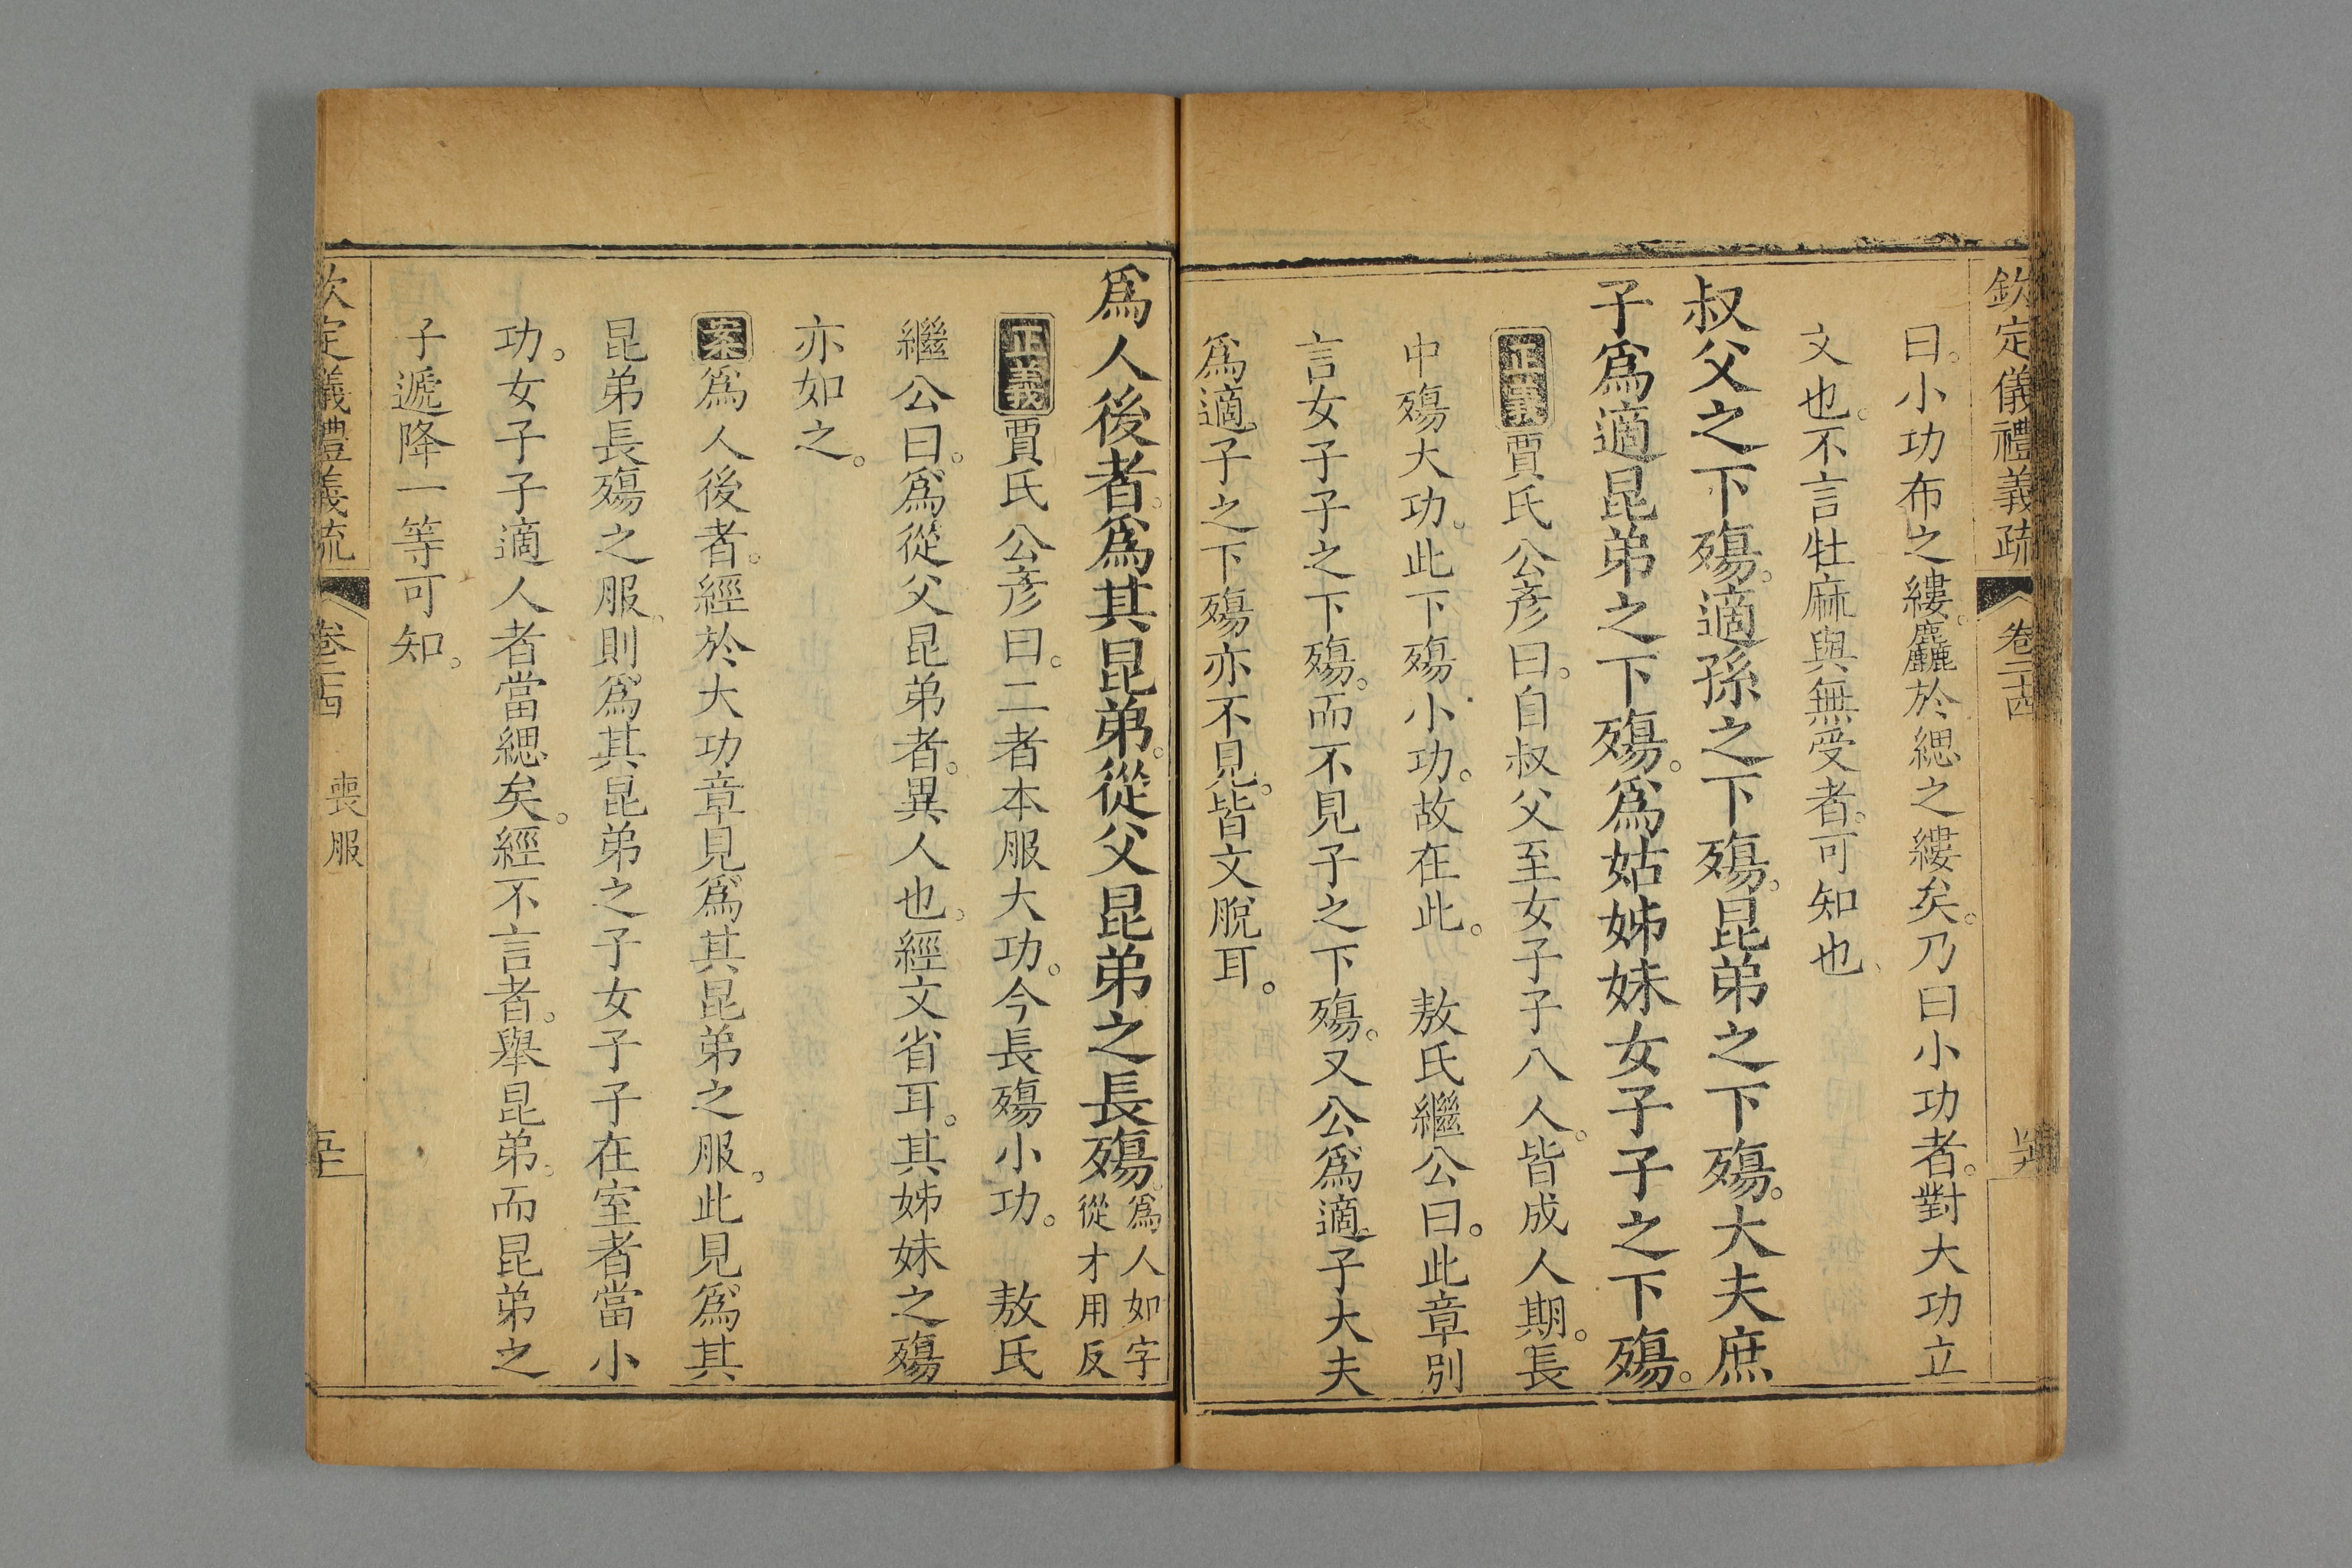 欽定儀禮義疏 卷二十四
曰。小功布之縷。麤於緦之縷矣。乃曰小功者。對大功立
文也。不言牡麻與無受者。可知也
叔父之下殤。適孫之下殤。昆弟之下殤。大夫庶
子爲適昆弟之下殤。爲姑姊妹女子子之下殤。
正義賈氏公彥曰。自叔父至女子子八人。皆成人期。長
中殤大功。此下殤小功。故在此。 敖氏繼公曰。此章別
言女子子之下殤。而不見子之下殤。又公爲適子大夫
爲適子之下殤亦不見。皆文脫耳。
爲人後者。爲其昆弟。從父昆弟之長殤。爲人如字
從才用反
正義賈氏公彥曰。二者本服大功。今長殤小功。 敖氏
繼公曰。爲從父昆弟者。異人也。經文省耳。其姊妹之殤
亦如之。
案爲人後者。經於大功章見爲其昆弟之服。此見爲其
昆弟長殤之服。則爲其昆弟之子女子子在室者當小
功。女子子適人者當緦矣。經不言者。舉昆弟。而昆弟之
子遞降一等可知。
欽定儀禮義疏 卷二十四 喪服